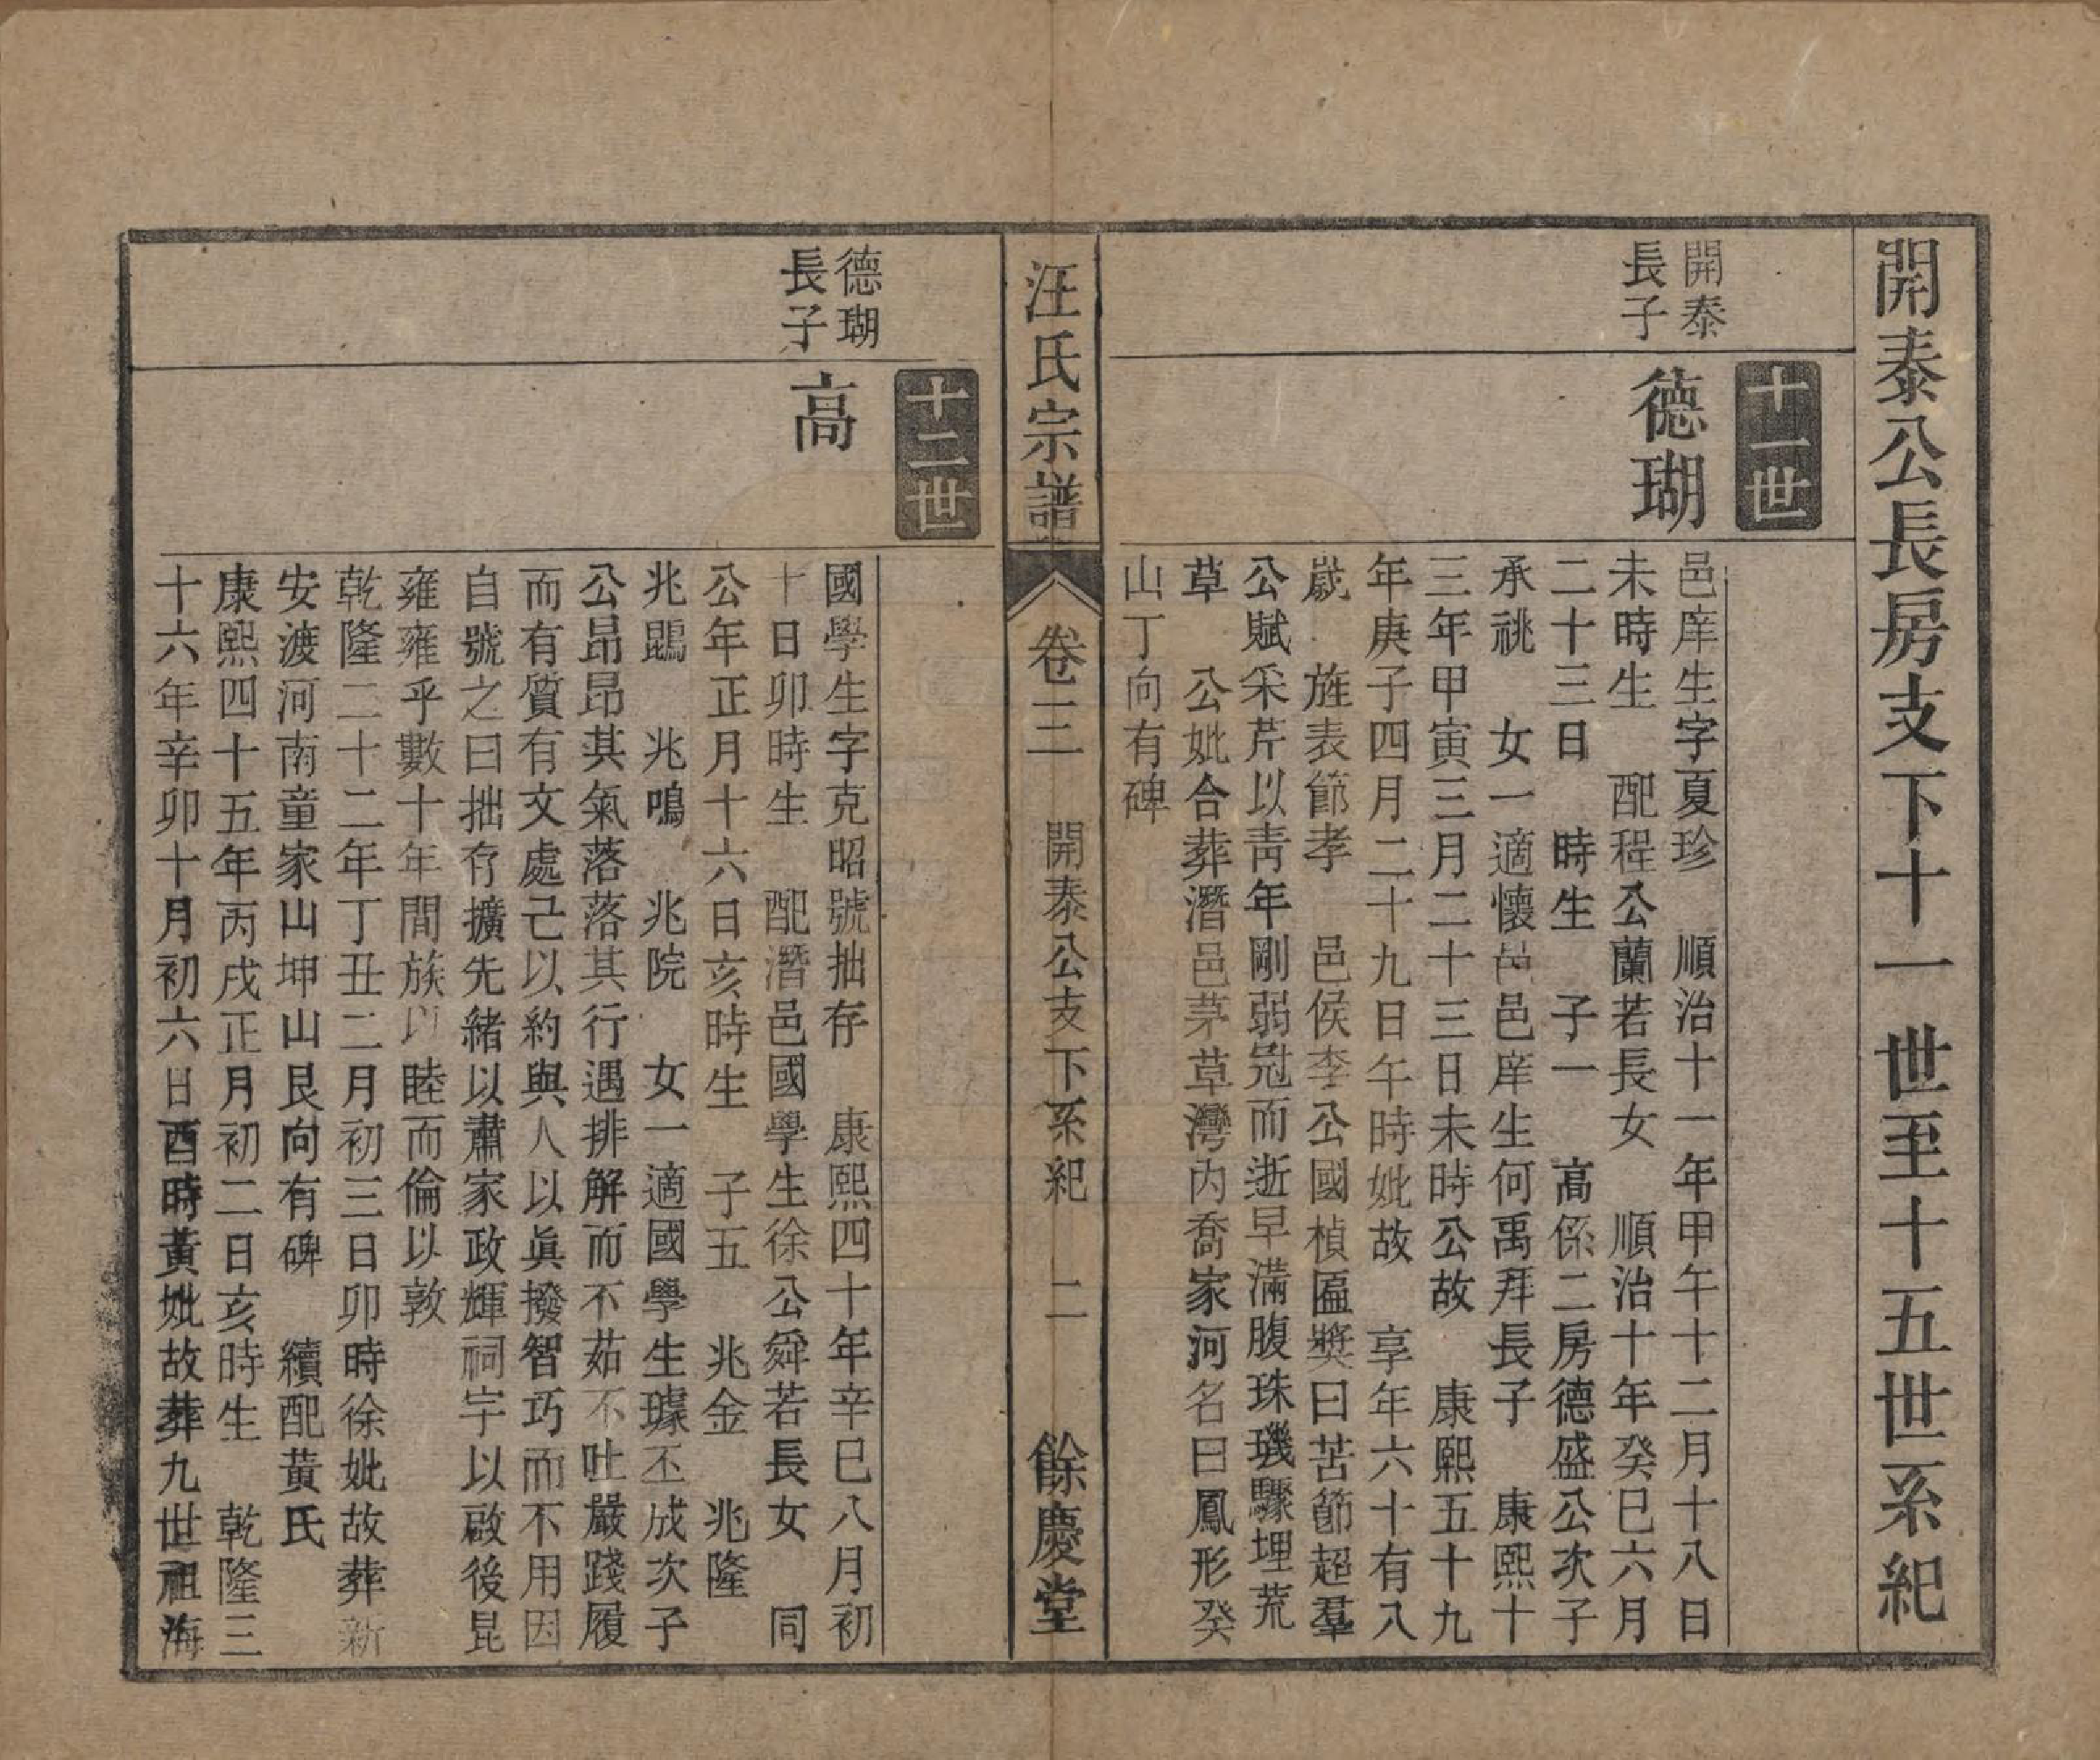 開泰公長房支下十一世至十五世系紀
十一世
開泰
長子
德瑚
邑庠生字夏珍　順治十一年甲午十二月十八日
未時生　配程公蘭若長女　順治十年癸巳六月
二十三日　時生　子一　高係二房德盛公次子
承祧　女一適懷邑邑庠生何禹拜長子　康熙十
三年甲寅三月二十三日未時公故　康熙五十九
年庚子四月二十九日午時妣故　享年六十有八
歲　旌表節孝　邑侯李公國楨匾奬曰苦節超羣
公賦采芹以靑年剛弱冠而逝早滿腹珠璣驟埋荒
草　公妣合葬潛邑茅草灣內喬家河名曰鳳形癸
山丁向有碑
汪氏宗譜
卷三
開泰公支下系紀
二
餘慶堂
十二世
德瑚
長子
高
國學生字克昭號拙存　康熙四十年辛巳八月初
十日卯時生　配潛邑國學生徐公舜若長女　同
公年正月十六日亥時生　子五　兆金　兆隆
兆鵾　兆鳴　兆院　女一適國學生璩丕成次子
公昂昂其氣落落其行遇排解而不茹不吐嚴踐履
而有質有文處己以約與人以眞撥智巧而不用因
自號之曰拙存擴先緒以肅家政輝祠宇以啟後昆
雍雍乎數十年間族以睦而倫以敦
乾隆二十二年丁丑二月初三日卯時徐妣故葬新
安渡河南童家山坤山艮向有碑　續配黃氏
康熙四十五年丙戌正月初二日亥時生　乾隆三
十六年辛卯十月初六日酉時黃妣故葬九世祖海